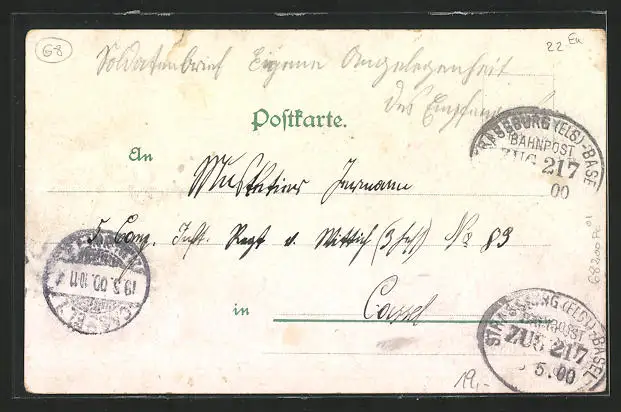 68
22 Eu
Soldatenbrief Eigene Angelegenheit
des Empfäng
Postkarte.
STRASSBURG (ELS)-BASEL
BAHNPOST
ZUG 217
00
An
Musketier
5 Comp. Inft. Regt v. Wittich (3 Hess) No 83
68200 Pc 01
19.5.00. 10-11
CASSEL
in Cassel
STRASSBURG (ELS)-BASEL
BAHNPOST
ZUG 217
5.00
19,-